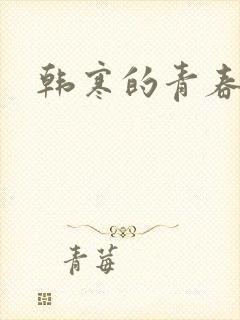 韩寒的青春
青莓